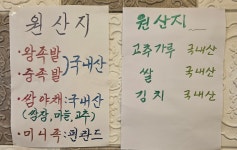 원산지
·왕족발
·중족발 )국내산
·쌈야채:국내산
(쌈장,마늘,고추)
·미니족:핀란드
원산지
고추가루 국내산
쌀 국내산
김치 국내산